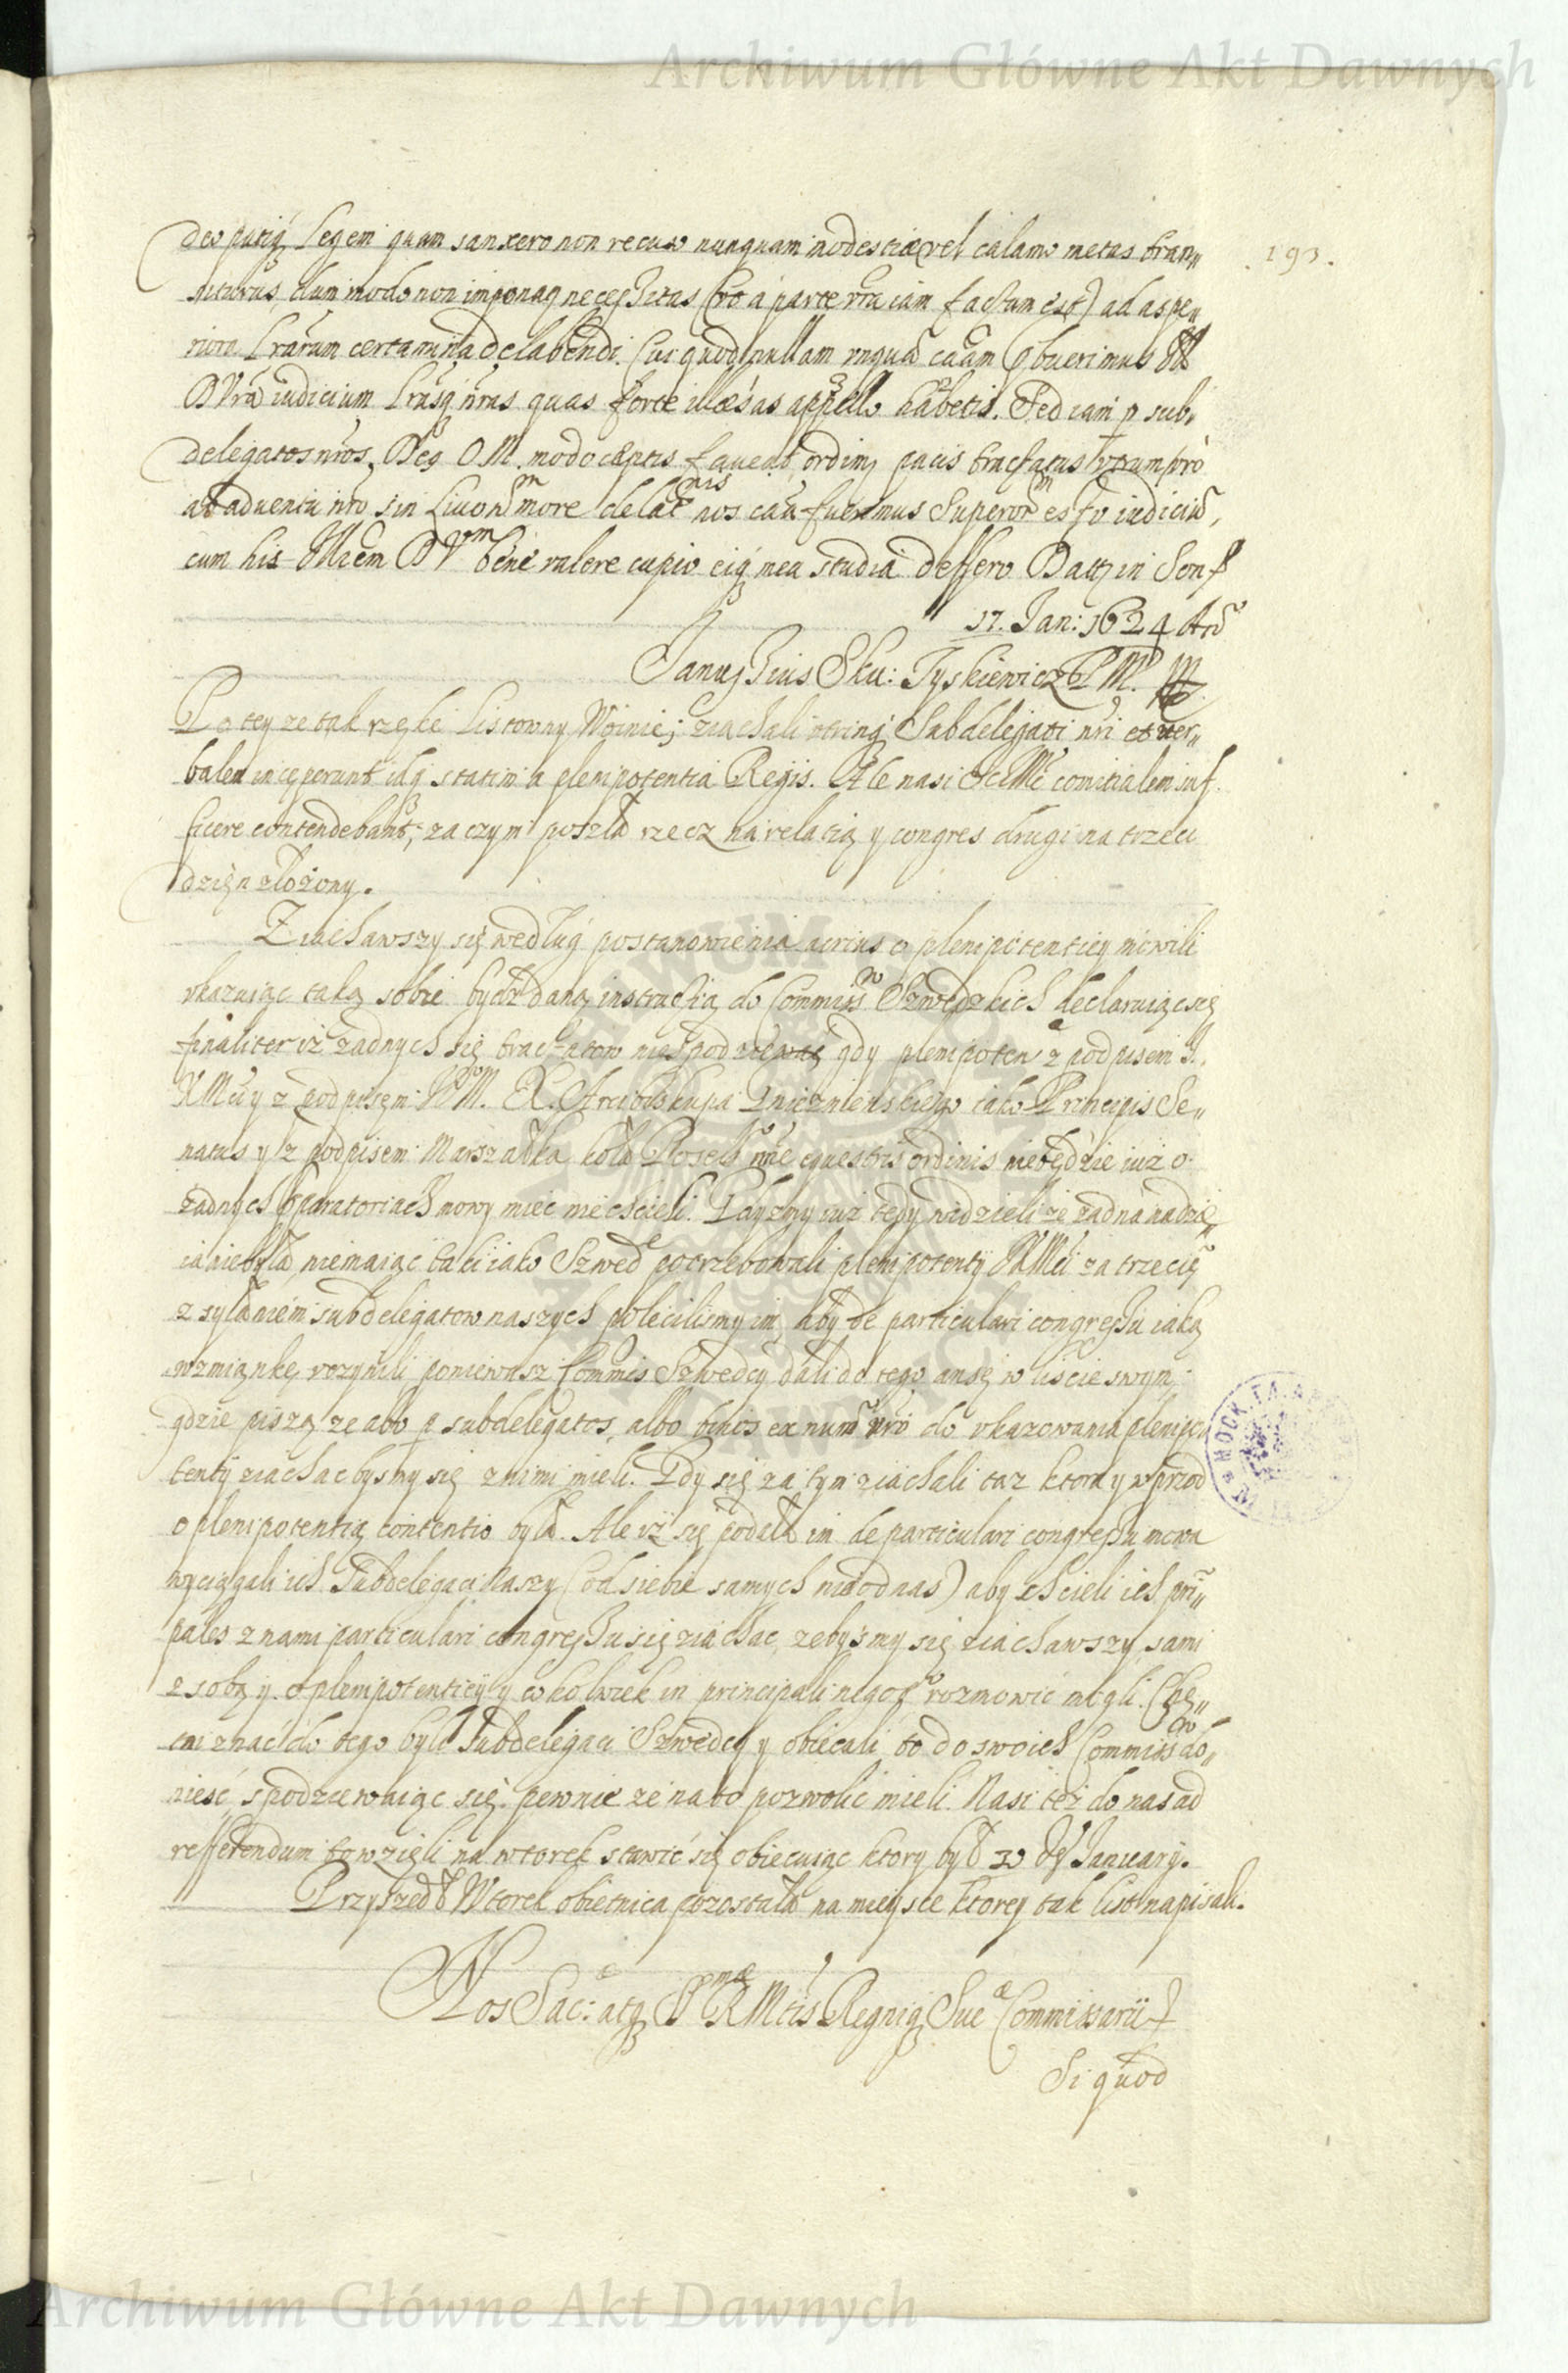 Archiwum Główne Akt Dawnych
deo patiq legem quam sanxero non recuso nunquam modestiae vel calamo metas tran„
. 193 .
siturus, dum modo non imponaq necessitas (vt á parte vra iam factum est) ad aspe„
riora lrarum certamina delabendi. Cui quod nullam vnquã cãam
DVrã iudicium lrasq nras quas forte illaesas appello habetis. Sed iam p sub„
delegatos nros, Deq O M. modo caeptis faveat, ordinq pacis tractatus vtrum pro
at adventu nro sin Livonm more delat nos caã fuerimus Superorm esto iudiciũ,
cum his Illrem DVom bene valere cupio eiq mea studia deffero Datt in
17. Jan: 1624 An̄
Janussius Sku: Tyskiewicz P M.
Po tey ze tak rzekę listowny Woinie; ziachali vtrinq Subdelegati nri et ver„
balem inceperunt idq statim a plenipotentia Regis. Ale nasi comitialem suf„
ficere contendebant, zaczym poszła rzecz na relatią y congres drugi na trzeci
dzięn złożony.
Ziachawszy się według postanowienia acrius o plenipotenticy mowili
vkazuiąc taką sobie bydz daną instructią do Commissw Szwedzkich declaruiąc się
finaliter iż żadnych się tractatow nie gdy plenipoten z podpisem J.
KMci y z podpisem X. Arcibiskupa Gnieznienskiego iako Principis Se„
natus y z podpisem Marszałka koła Posels noīe equestris ordinis niebędzie iuż o
żadnych pparatoriach mowy miec niechcieli. Gdyzmy iuż tedy widzieli że żadna nadzie„
ia niebyła, niemaiąc taki iako Szwed potrzebowali plenipotentÿ JKMci za trzecię
zsyłaniem subdelegatow naszych polecilismy im, aby de particulari congressu iaką
wzmiankę vczynili poniewasz Commis Szwedcy dali do tego ansę w liscie swym
gdzie piszą ze abo p subdelegatos, albo binos ex num nro do vkazowania plenipo
tentÿ ziachac bysmy się z nimi mieli. Gdy się za tym ziachali taz ktora y wprzod
o plenipotentią contentio była. Ale iż się podała im de particulari congressu mowa
wyciągali ich Subdelegaci naszy (od siebie samych nie od nas) aby chcieli ich prī„
pales z nami particulari congressu się ziachac, zebysmy się ziachawszy, sami
z sobą y o plenipotenticÿ y cokolwiek in principali negor rozmowić mogli. Chę„
tni znać do tego byli Subdelegaci Szwedcy y obiecali to do swoich Commissw do„
nieść, spodziewaiąc się pewnie ze na to pozwolic mieli. Nasi też do nas ad
refferendum to wzięli na wtorek stawić się obiecuiąc ktory był 30 Januarÿ.
Przyszedł Wtorek obietnica pozostała na mieysce ktorey tak list napisali.
Nos Sac: atq Smae RMtis Regniq Sue Commissarii
Si quod
Archiwum Główne Akt Dawnych